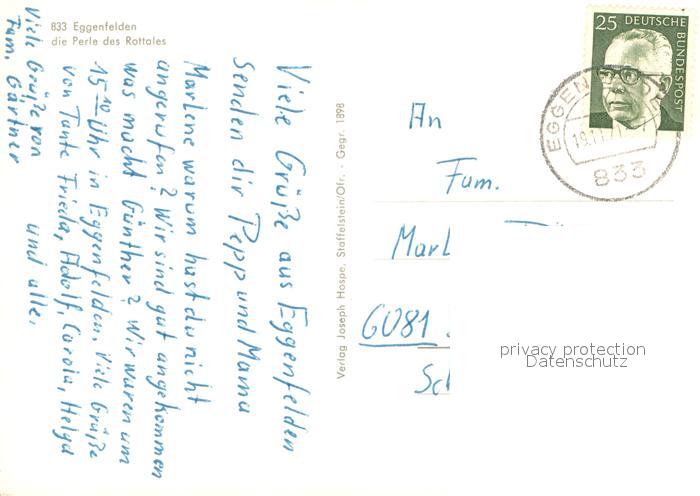 833 Eggenfelden
die Perle des Rottales
Viele Grüße aus Eggenfelden
Senden dir Pepp und Mama
Marlene warum hast du nicht
angerufen? Wir sind gut angekommen
was macht Günther? Wir waren um
15 Uhr in Eggenfelden. Viele Grüße
von Tante Frieda, Adolf, Carola, Helga
und alle.
Viele Grüße von
Fam. Gärtner
Verlag Joseph Hospe, Staffelstein/Ofr. - Gegr. 1898
25 DEUTSCHE
BUNDESPOST
833
An
Fam.
6081
privacy protection
Datenschutz